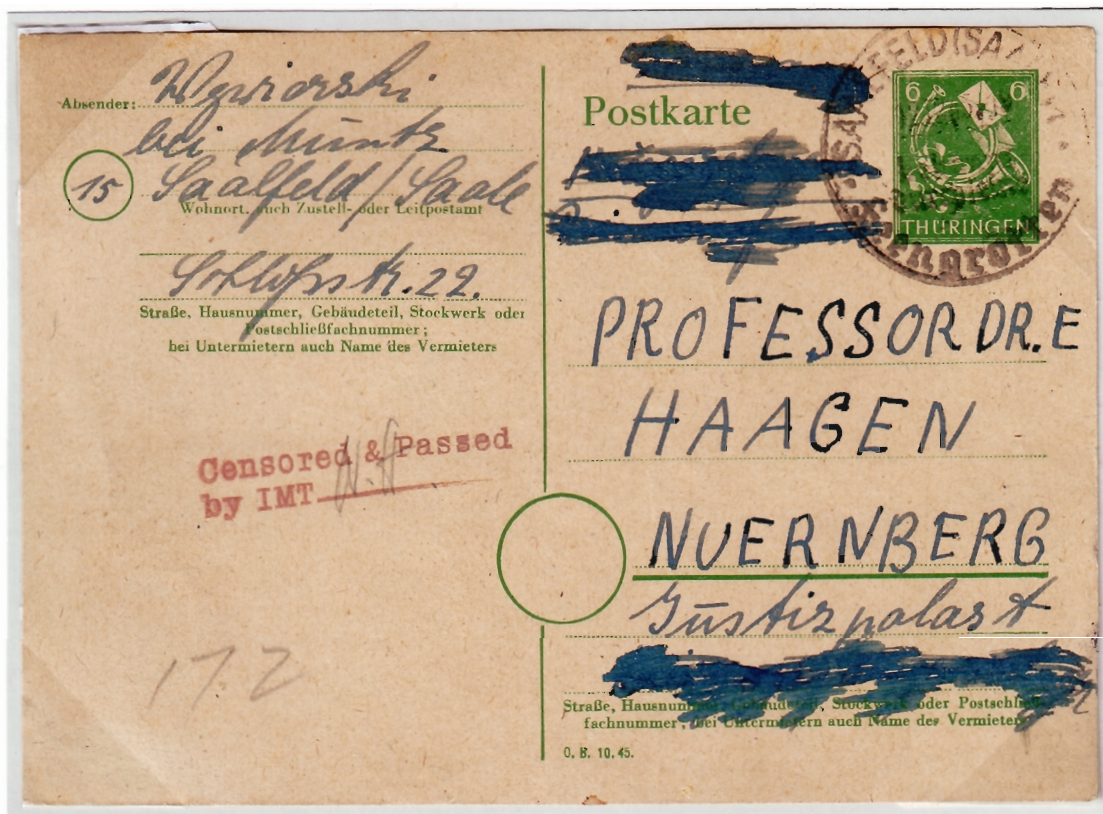 Absender: Wywiorski
bei Müntz
15 Saalfeld/Saale
Wohnort, auch Zustell- oder Leitpostamt
Schloßstr. 22.
Straße, Hausnummer, Gebäudeteil, Stockwerk oder
Postschließfachnummer;
bei Untermietern auch Name des Vermieters
Censored & Passed
by IMT
17.2
Postkarte
6 6
THÜRINGEN
SAALFELD (SAALE)
Feengrotten
PROFESSOR DR. E
HAAGEN
NUERNBERG
Justizpalast
Straße, Hausnummer, Gebäudeteil, Stockwerk oder Postschließ-
fachnummer; bei Untermietern auch Name des Vermieters
O. B. 10. 45.